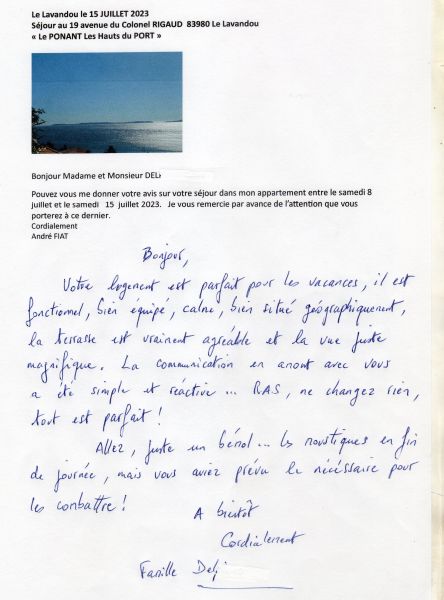 Le Lavandou le 15 JUILLET 2023
Séjour au 19 avenue du Colonel RIGAUD 83980 Le Lavandou
« Le PONANT Les Hauts du PORT »
Bonjour Madame et Monsieur DEL
Pouvez vous me donner votre avis sur votre séjour dans mon appartement entre le samedi 8
juillet et le samedi 15 juillet 2023. Je vous remercie par avance de l'attention que vous
porterez à ce dernier.
Cordialement
André FIAT
Bonjour,
Votre logement est parfait pour les vacances, il est
fonctionnel, bien équipé, calme, bien situé géographiquement,
la terrasse est vraiment agréable et la vue juste
magnifique. La communication en amont avec vous
a été simple et réactive ... RAS, ne changez rien,
tout est parfait !
Allez, juste un bémol ... les moustiques en fin
de journée, mais vous aviez prévu le nécessaire pour
les combattre !
A bientôt
Cordialement
Famille Delj